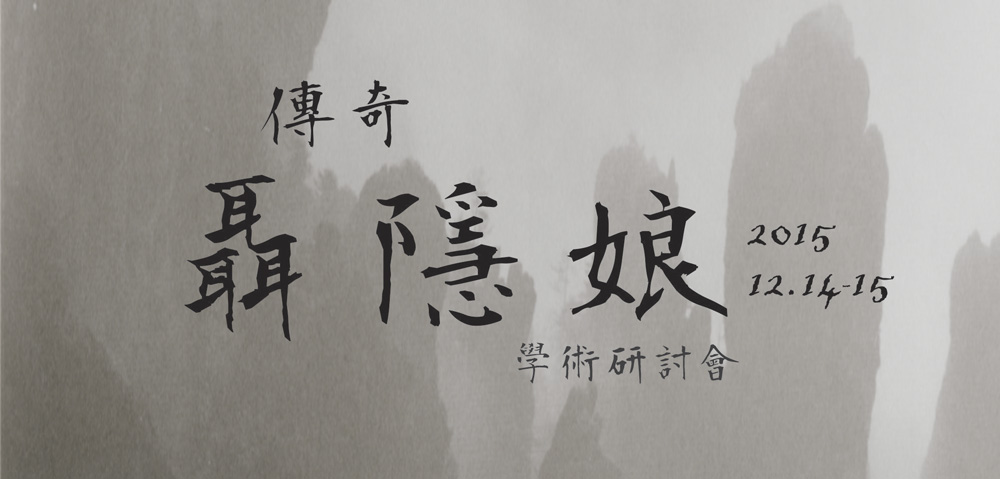 傳奇
聶隱娘
2015
12.14-15
學術研討會